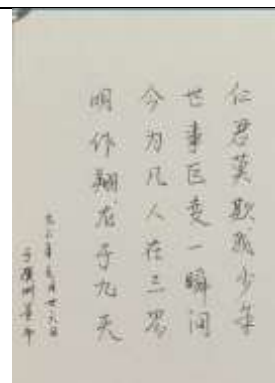 仁君莫欺我少年
世事巨变一瞬间
今为凡人在三界
明作翔龙于九天